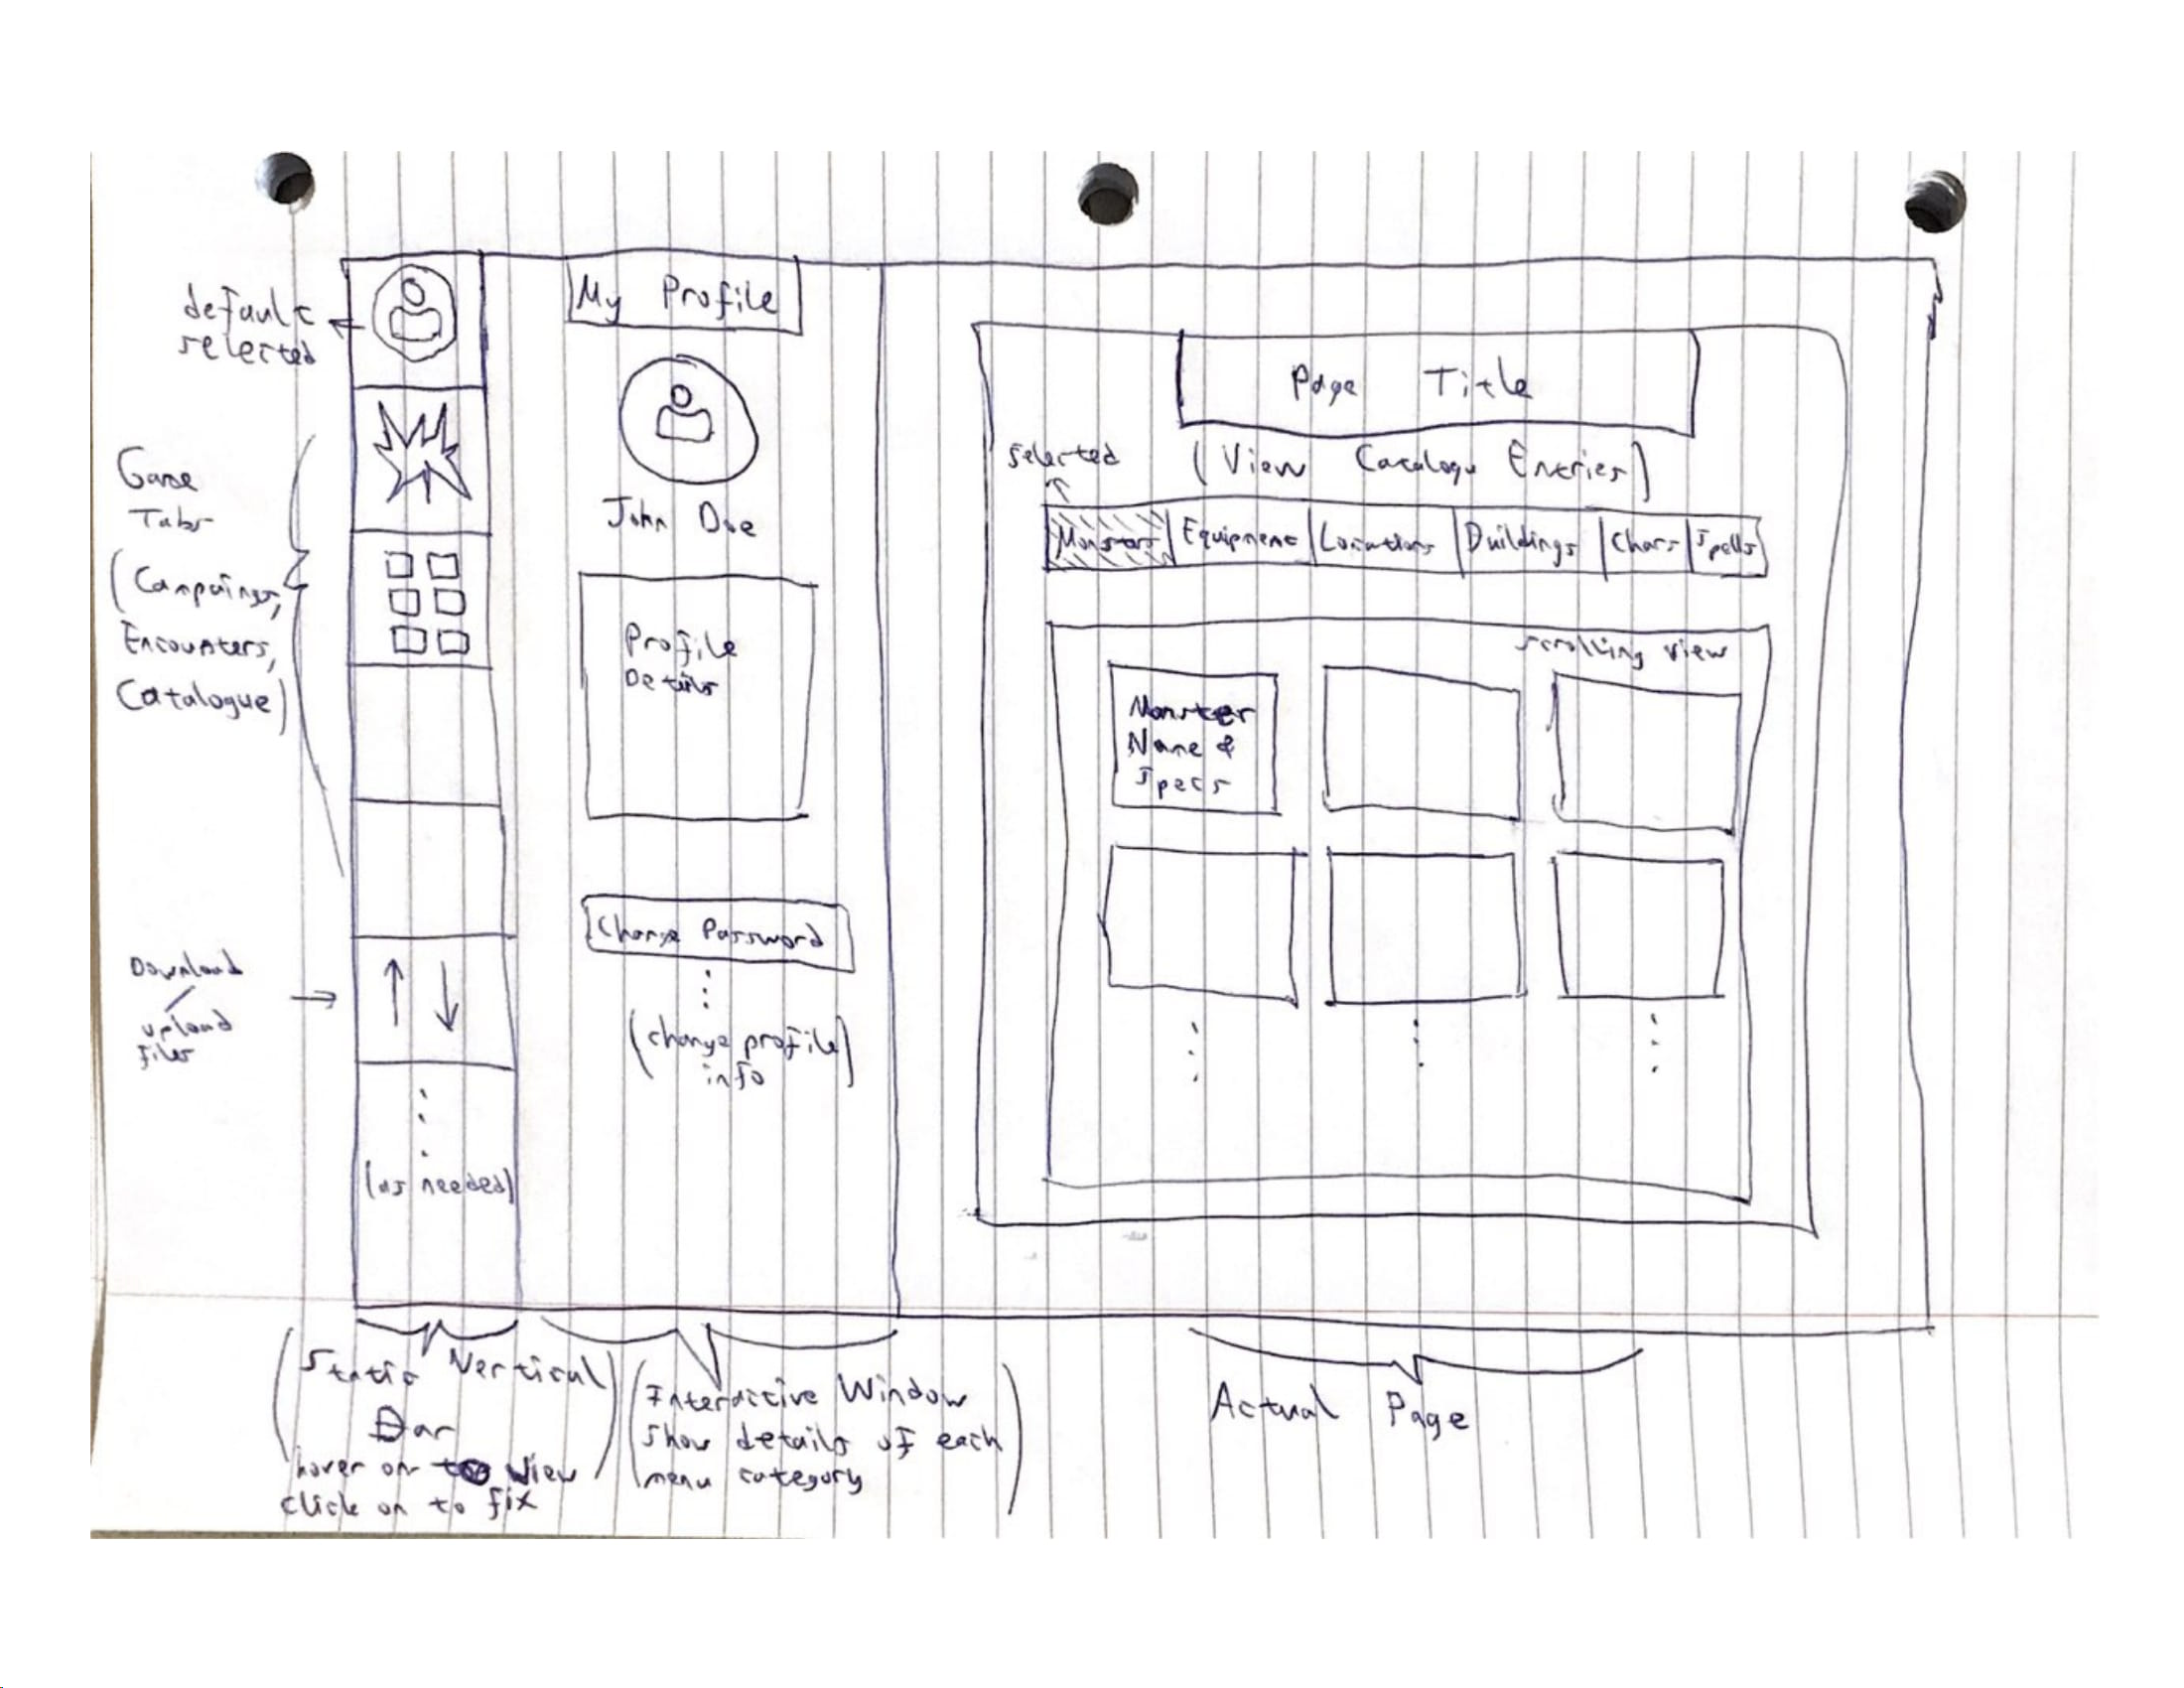 default
selected
Game
Tabs
(Campaings,
Encounters,
Catalogue)
Download
/
upload
files
(as needed)
My Profile
John Doe
Profile
Details
Change Password
(change profile
info)
Page Title
(View Catalogue Entries)
selected
Monsters Equipment Locations Buildings Chars Spells
scrolling view
Monster
Name &
Specs
(Static Vertical)
Bar
hover on to view
click on to fix
(Interactive Window
show details of each
menu category)
Actual Page